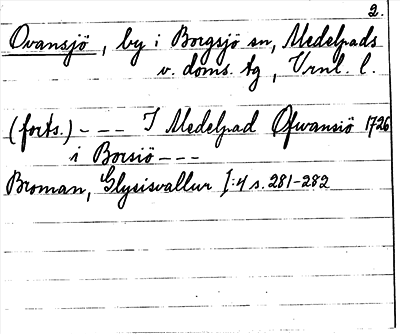 2.
Ovansjö, by i Borgsjö sn, Medelpads
v. doms. tg, Vrnl. l.
(forts.) - - - I Medelpad Ofwansiö 1726
i Borsiö - - -
Broman, Glysisvallur I:4 s. 281-282